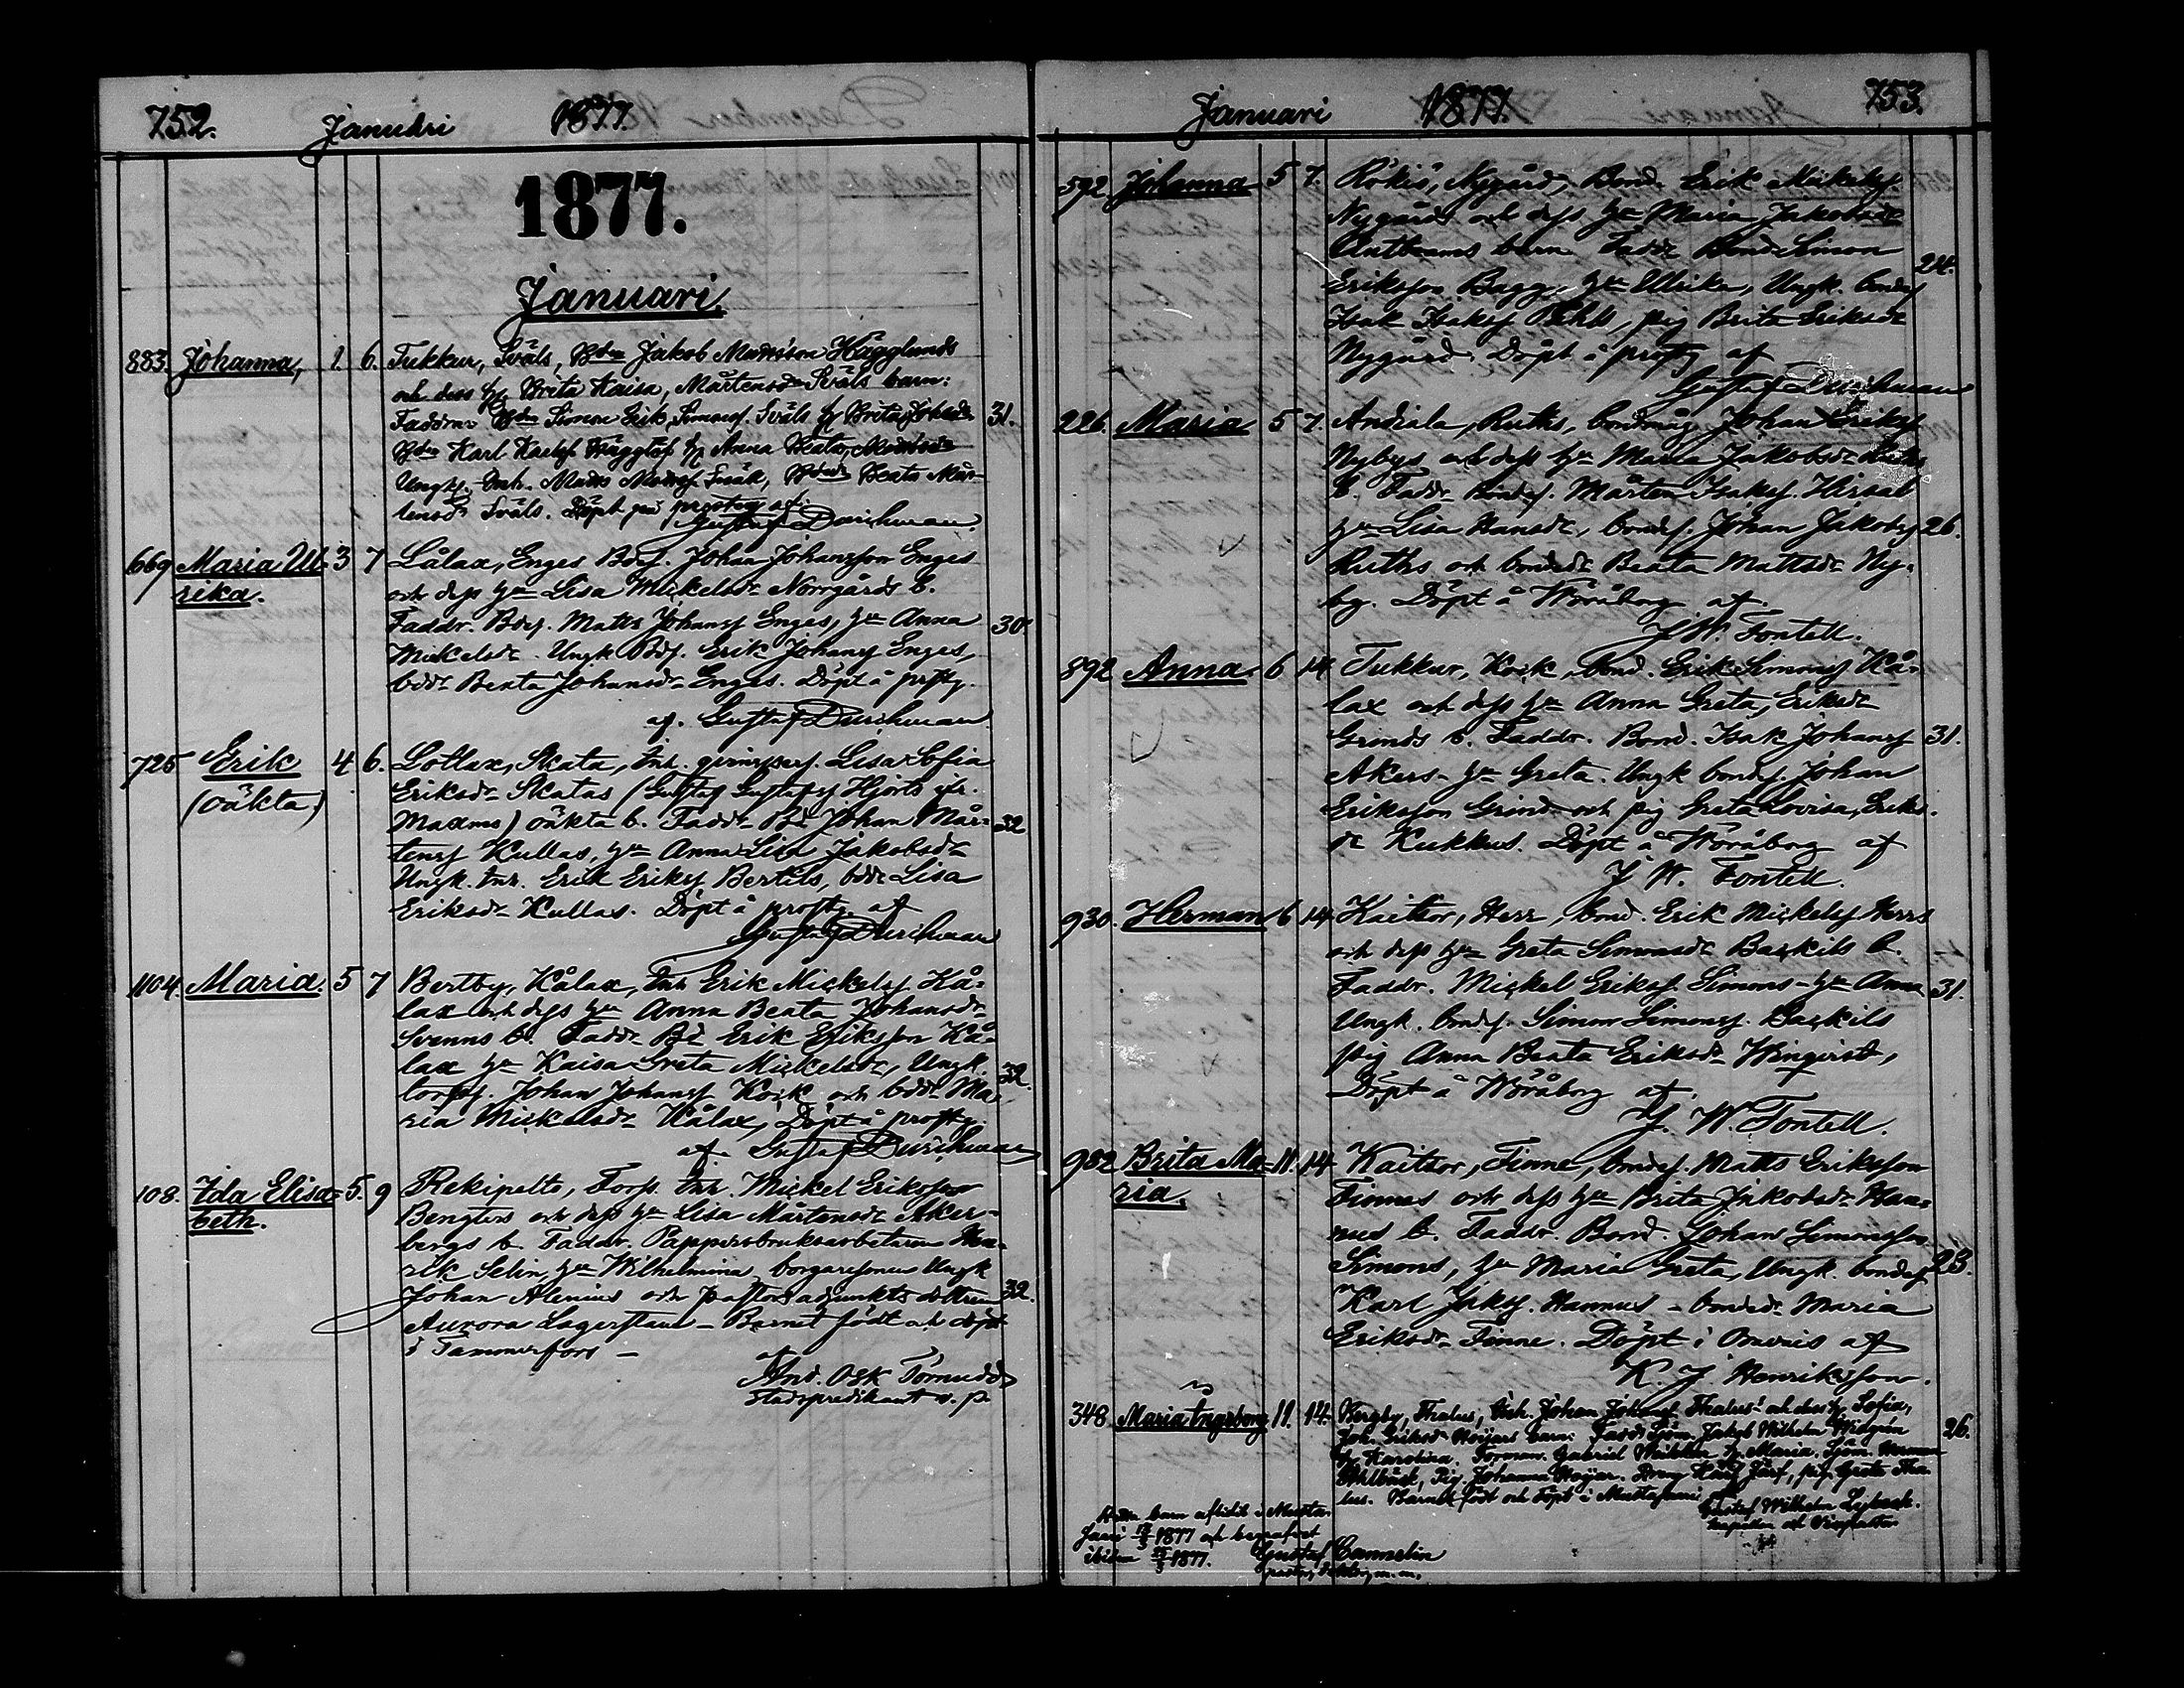 752. Januari 1877.
1877.
Januari.
883. Johanna, 1. 6. Tukkur, Sväls, Bdn Jakob Mattsson Hägglunds
och dess h. Brita Kaisa, Mårtensdr Sväls barn:
Faddrar Bdn Simon Erik Simonss. Sväls h. Brita 31.
Bdn Karl Karlss. Hägglöf h. Anna Beata,
Ungk. Inh. Matts Beata Mår-
tensdr Sväls. Döpt på prostg af
Gustaf Durchman
669 Maria Ul- 3 7 Lålax, Enges Bds. Johan Johansson Enges
rika. och dess hu Lisa Mickelsdr Norrgårds b.
Faddr. Bds. Matts Johanss Enges, hu Anna 30.
Mickelsdr. Ungk Bds. Erik Johanss Enges,
bddr Beata Johansdr Enges. Döpt å prstg.
af. Gustaf Durchman
725 Erik 4 6. Lotlax, Skata, Inh. Lisa Sofia
(oäkta) Eriksdr Skatas (Gustaf Gustafss Hjorts fr.
Maxmo) oäkta b. Faddr Bd Johan Mår- 32
tenss Kullas, hu Anna Lisa Jakobsdr
Ungk. Inh. Erik Erikss Bertils, bddr Lisa
Eriksdr Kullas. Döpt å prostg. af
Gustaf Durchman
1104. Maria. 5 7 Bertby, Kålax, Inh Erik Mickelss Kå-
lax och dess hu Anna Beata Johansdr
Svenns b. Faddr Bd Erik Eriksson Kå-
lax hu Kaisa Greta Mickelsdr, Ungk. 32.
torps. Johan Johanss Kock och bddr Ma-
ria Mickelsdr Kålax, Döpt å prostg.
af Gustaf Durchman
108. Ida Elisa- 5. 9 Rekipelto, Torp. Inh. Mickel Eriksson
beth. Bengters och dess hu Lisa Mårtensdr Åker-
bergs b. Faddr. Pappersbruksarbetaren Hen-
rik Selin, hu Wilhelmina, borgaresonen Ungk
Johan Alenius och pastorsadjunkts dottren 32.
Aurora Lagerstam – Barnet födt och döpt
i Tammerfors –
af
And. Osk Törnudd
stadspredikant v. p.
Januari 1877. 753.
592 Johanna 5 7. Rökiö, Nygård, Bond. Erik Mickelss.
Nygård och dess hu Maria Jakobsdr
barn Faddr Bond Simon
Eriksson Bagg, hu Ulrika, Ungk. bondes 24.
Isak Isakss , pig Brita Eriksdr
Nygård. Döpt å prostg af
Gustaf Durchman
226. Maria 5 7. Andiala, Ruths, bondmåg Johan Erikss
Nybys och dess hu Maria Jakobsdr Ruths
b. Faddr. Bondes. Mårten Isakss.
hu Lisa Hansdr, bondes. Johan Jakobss 26.
Ruths och bondedr Beata Mattsdr Ny-
by. Döpt å Wöråborg af
J. W. Fontell.
892 Anna. 6 14 Tukkur, Kock, bond. Erik Simonss Kå-
lax och dess hu Anna Greta, Eriksdr
Grinds b. Faddr. Bond. Isak Johanss 31.
Akers – hu Greta. Ungk bondes. Johan
Eriksson Grind och pig Greta Lovisa, Eriks-
dr Kukkus. Döpt å Wöråborg af
J W. Fontell.
930. Herman 6 14 Kaitsor, Herr, bond. Erik Mickelss Herrs
och dess hu Greta Simonsdr Backils b.
Faddr. Mickel Erikss. Simons – hu Anna 31.
Ungk. bondes. Simon Simonss. Backils
pig Anna Beata Eriksdr Winqvist,
Döpt å Wöråborg af
J. W. Fontell.
982 Brita Ma- 11. 14 Kaitsor, Finne, bondes. Matts Eriksson
ria. Finnes och dess hu Brita Jakobsdr Han-
nus b. Faddr. Bond. Johan Simonsson
Simons, hu Maria Greta, Ungk. bondes 23.
Karl Jakss. Hannus – bondedr Maria
Eriksdr Finne. Döpt i Oravais af
K. J. Henriksson.
348 Maria Ingeborg 11. 14. Bergby, Thalus, Inh. Johan Johanss. Thalus' och dess h. Sofia,
Joh. Eriksdr Höijers barn: Faddr Sjöm. Jakob Wilhelm Widgrén 26.
h. Karolina. Formann. Gabriel h. Maria. Sjöm. Herman
Pig. Johanna Höijer. Dräng Karl pig. Greta Tha-
lus. Barnet födt och döpt i Mustasaari af
Gustaf Wilhelm Lybeck.
kapellan
Detta barn aflidit i Musta-
saari 1877 och begrafvet
ibidem 1877. Gustaf Cannelin